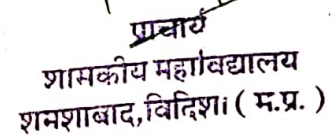 प्राचार्य
शासकीय महाविद्यालय
शमशाबाद, विदिशा ( म.प्र. )